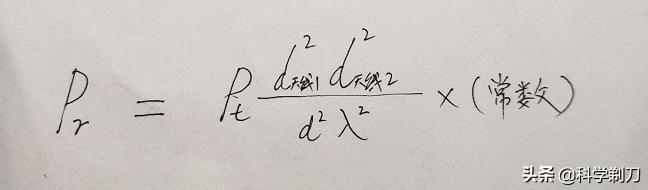 Pr = Pt d天线1² d天线2² / d² λ² × (常数)
头条 @科学剃刀